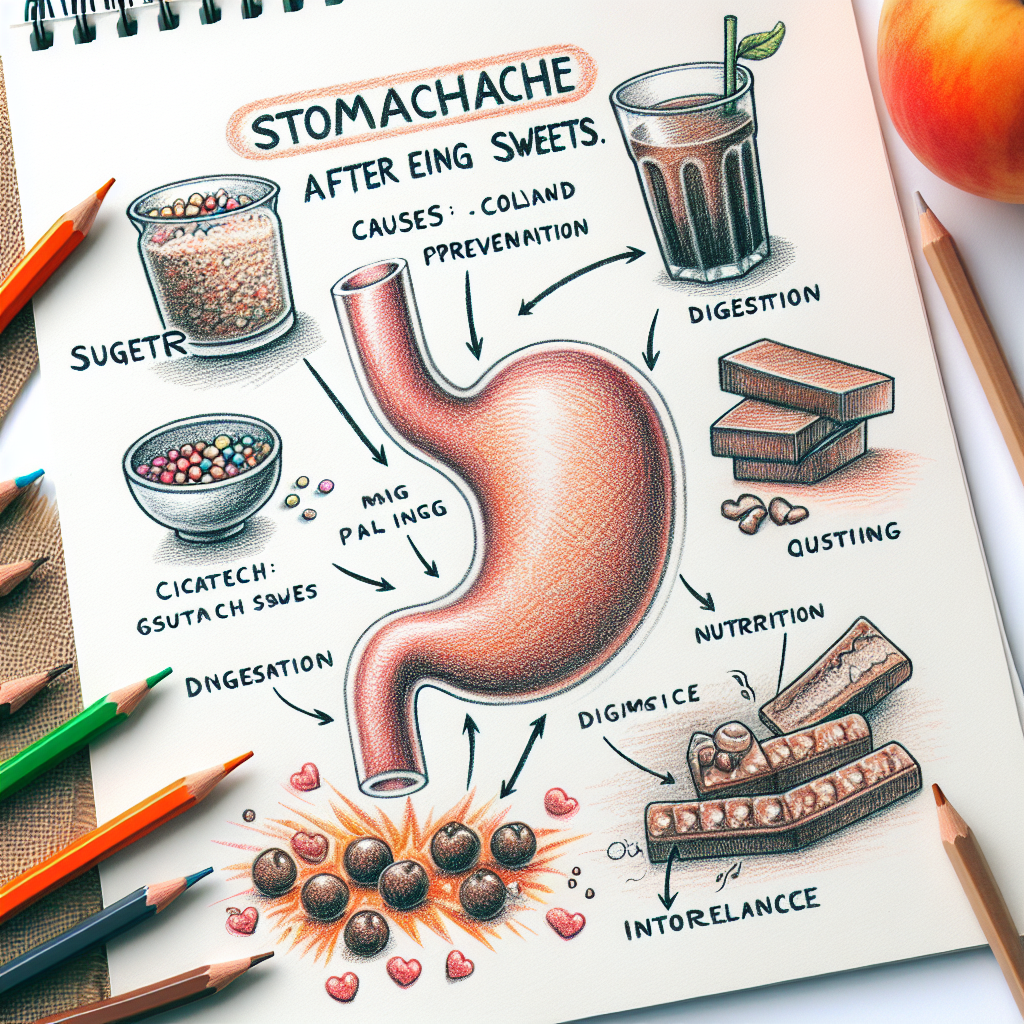 STOMACHACHE
AFTER EING SWEETS.
CAUSES: . COLIAND
PPREVENAITION
SUGETR
DIGESTTION
MIG
PAL INGG
QUSTIING
CICATECH:
GSUTACH SSWES
NUTRRITION
DNGESATION
DIGIMSICE
INTORELANCCE